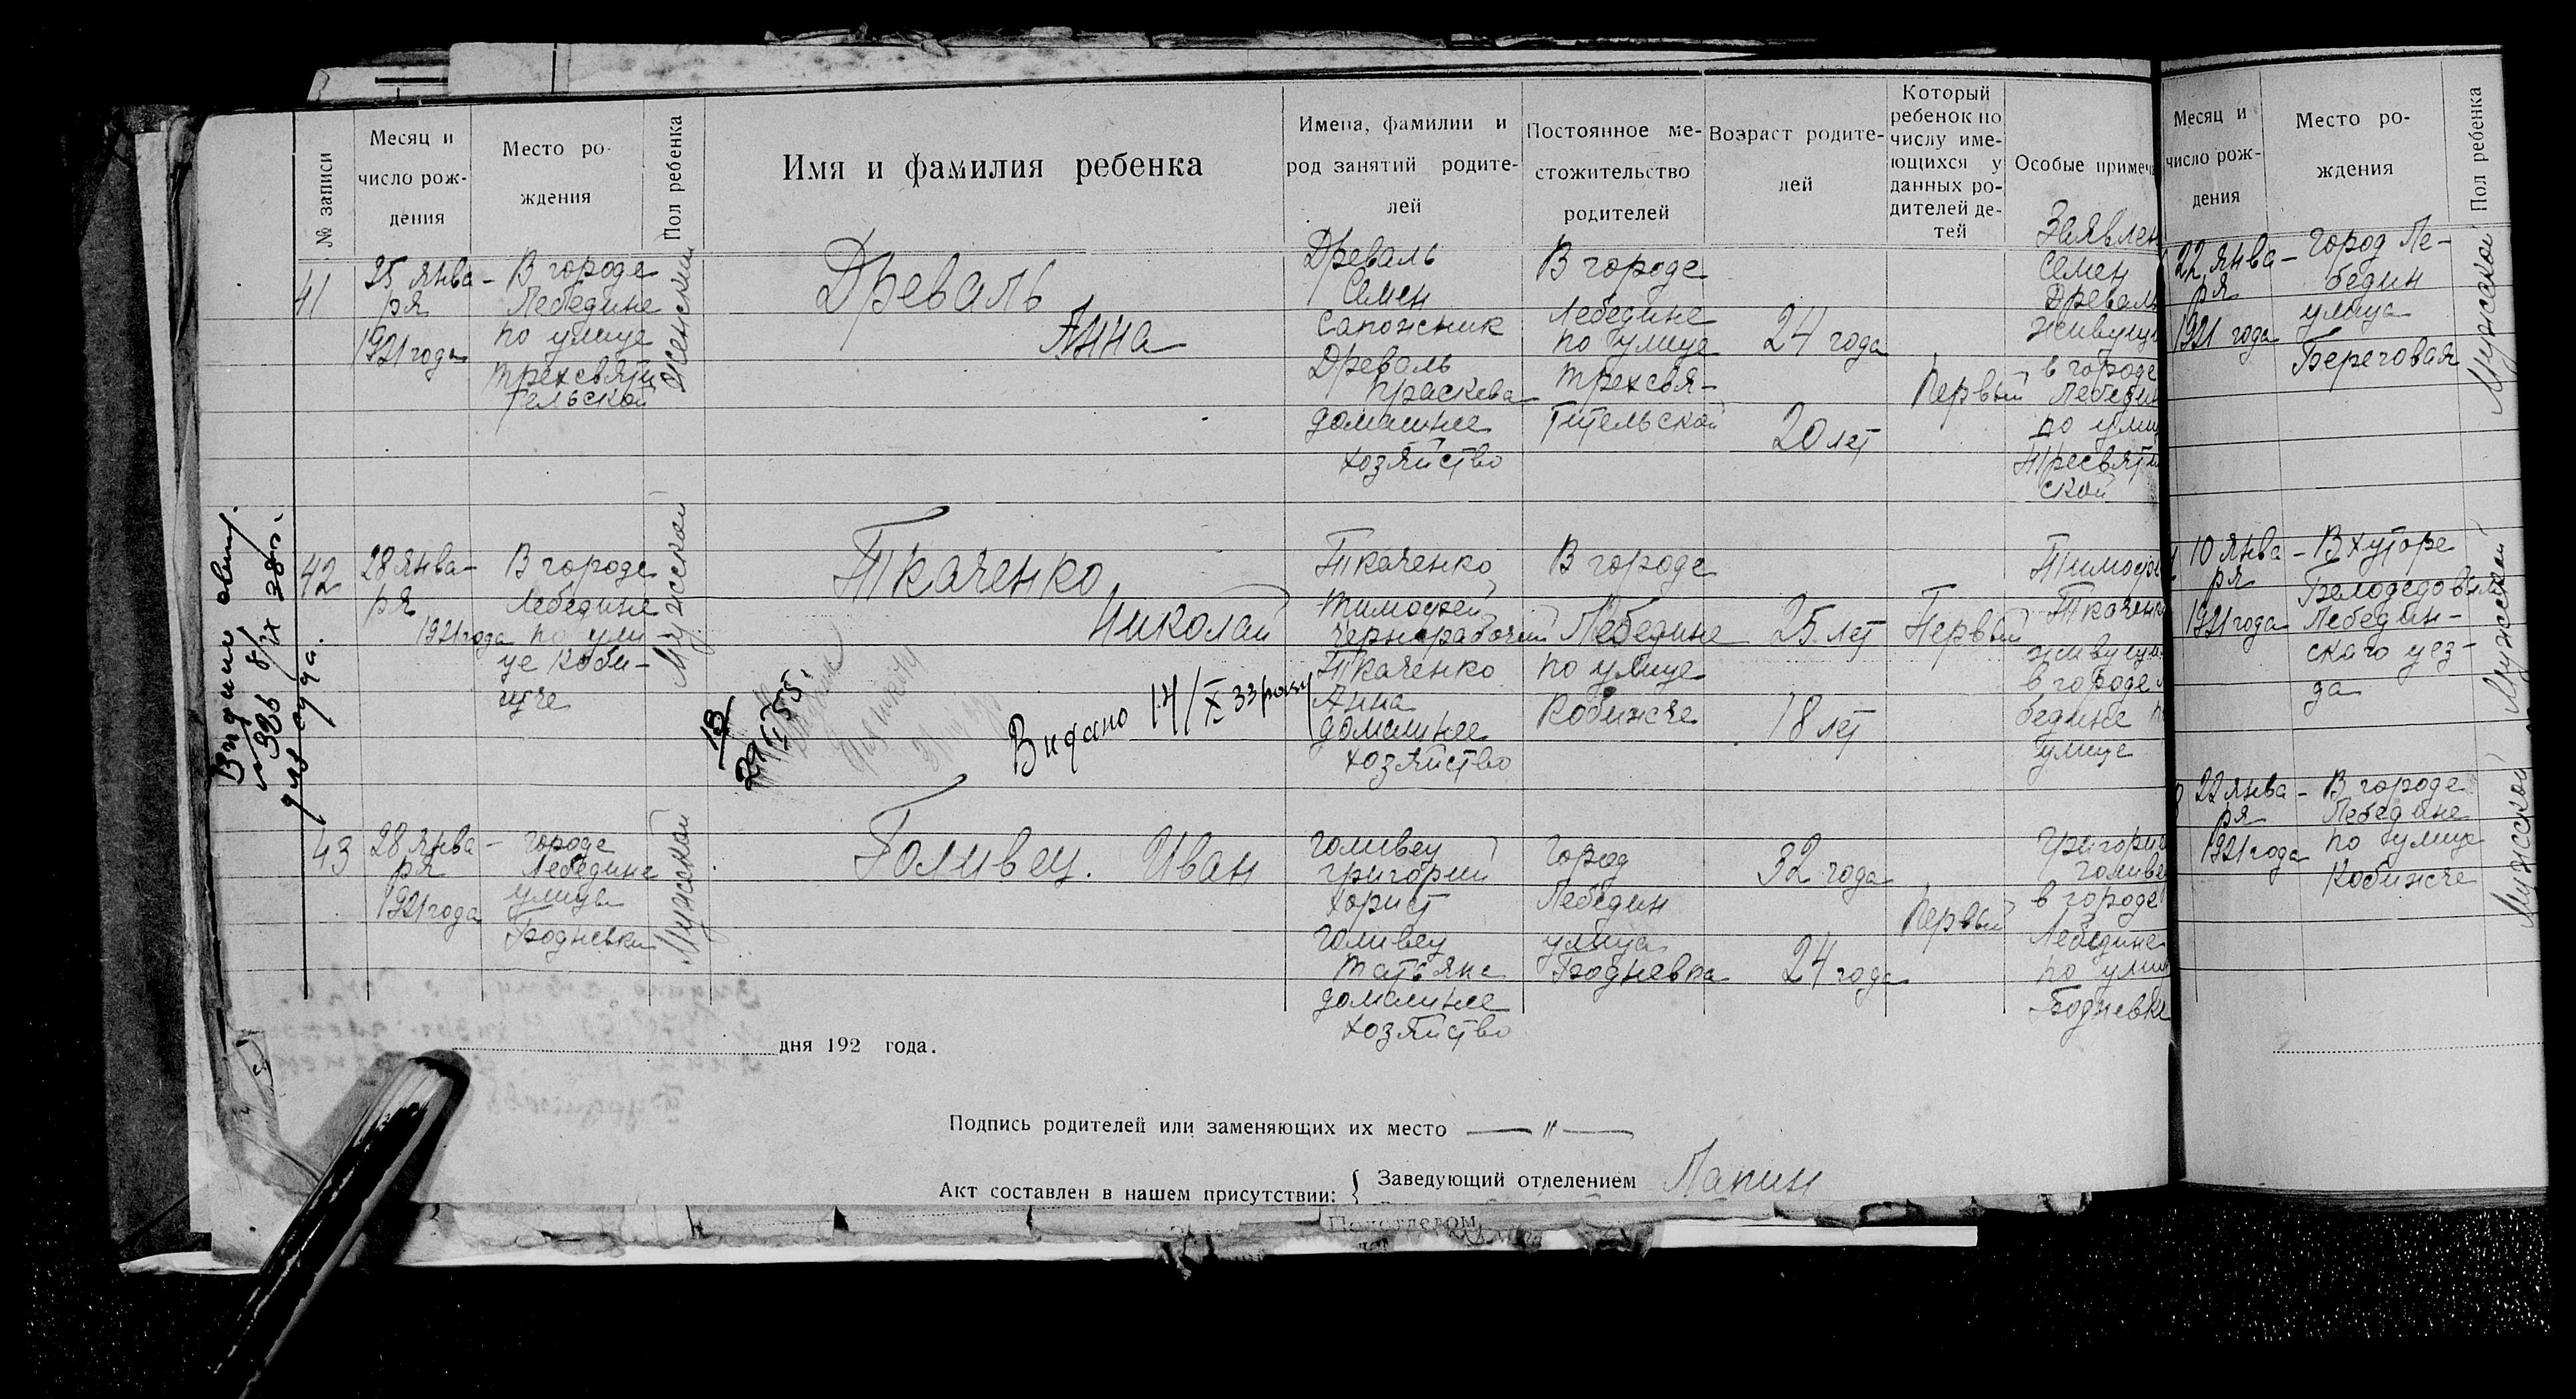 № записи
Месяц и
число рож-
дения
Место ро-
ждения
Пол ребенка
Имя и фамилия ребенка
Имена, фамилии и
род занятий родите-
лей
Постоянное ме-
стожительство
родителей
Возраст родите-
лей
Который
ребенок по
числу име-
ющихся у
данных ро-
дителей де-
тей
Особые примеча
41
25 янва-
ря
1921 года
В городе
Лебедине
по улице
Трехсвяти
тельской
Женский
Древаль
Анна
Древаль
Семен
сапожник
Древаль
Праскева
домашнее
хозяйство
В городе
Лебедине
по улице
Трехсвя-
тительской
24 года
20 лет
Первый
Заявлен
Семен
Древаль
живущи
в городе
Лебедин
по улиц
Тресвяти
ской
42
28 янва-
ря
1921 года
В городе
Лебедине
по ули
це Коби-
щче
Мужской
Ткаченко
Николай
Видано 14/X 33 року
Ткаченко
Тимофей
чернорабочий
Ткаченко
Анна
домашнее
хозяйство
В городе
Лебедине
по улице
Кобижче
25 лет
18 лет
Первый
Тимофе
Ткаченк
живущи
в городе
бедине п
улице
43
28 янва-
ря
1921 года
городе
Лебедине
улица
Бодневка
Мужской
Голивец. Иван
Голивец
Григорий
хорист
Голивец
Татьяна
домашнее
хозяйство
город
Лебедин
улица
Бодневка
32 года
24 года
Первый
Григори
Голиве
в городе
Лебедине
по ули
Бодневке
для суда.
дня 192 года.
Подпись родителей или заменяющих их место — " —
Акт составлен в нашем присутствии: { Заведующий отделением Лапин
Подотделом
Месяц и
число рож-
дения
Место ро-
ждения
Пол ребенка
22 янва-
ря
1921 года
город Ле-
бедин
улица
Береговая
Мужской
10 янва-
ря
1921 года
В хуторе
Лебедин-
скаго уез-
да
Мужской
22 янва-
ря
1921 года
В городе
Лебедине
по улице
Кобижче
Мужской